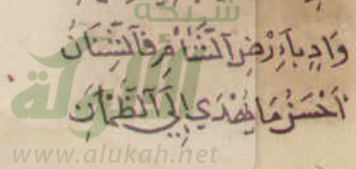 شبكة
الألوكة
وَادٍ بِأَرْضِ ٱلشَّأْمِ فَٱلشِّنَانُ
أَحْسَنُ مَا يُهْدَي إِلَي ٱلظَّمْآنِ
www.alukah.net